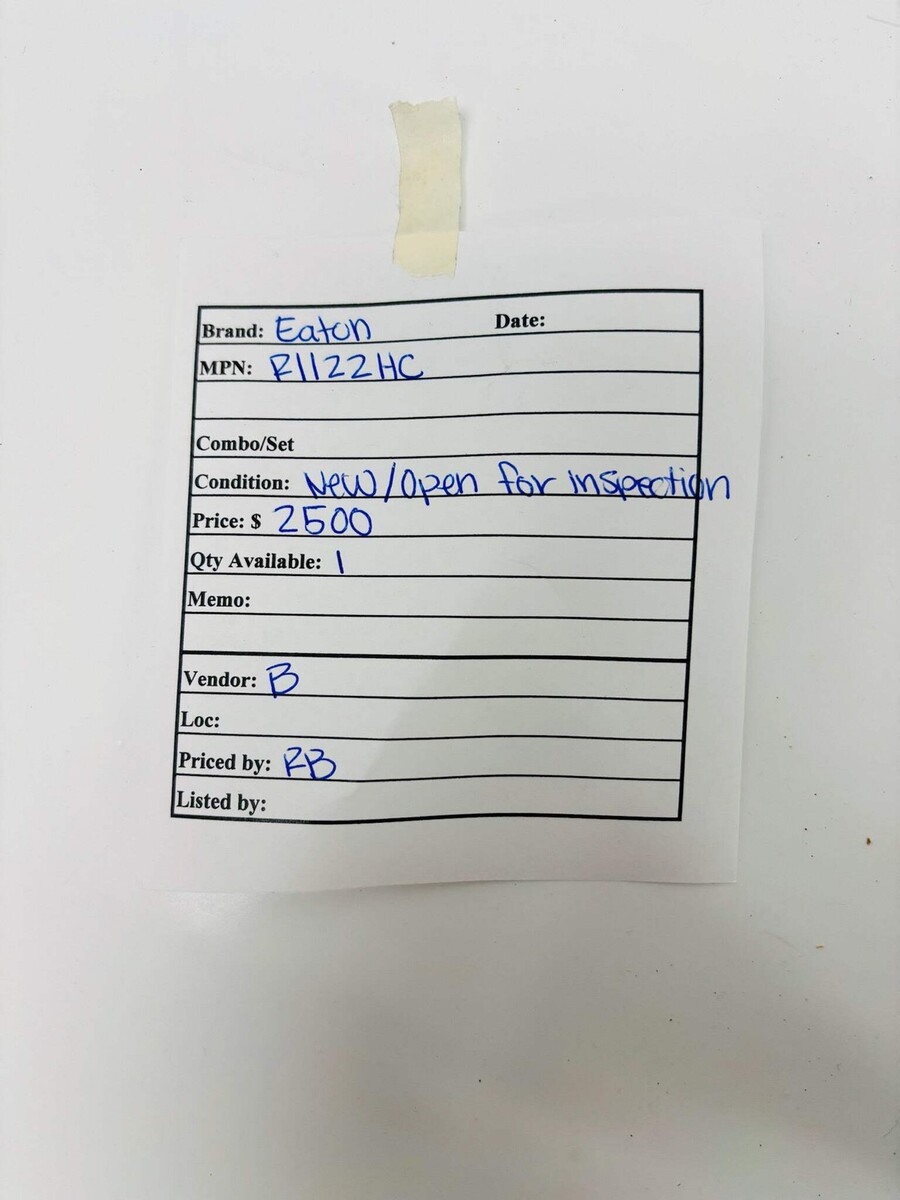 Brand: Eaton Date:
MPN: R1122HC
Combo/Set
Condition: New/Open for inspection
Price: $ 2500
Qty Available: 1
Memo:
Vendor: B
Loc:
Priced by: RB
Listed by: